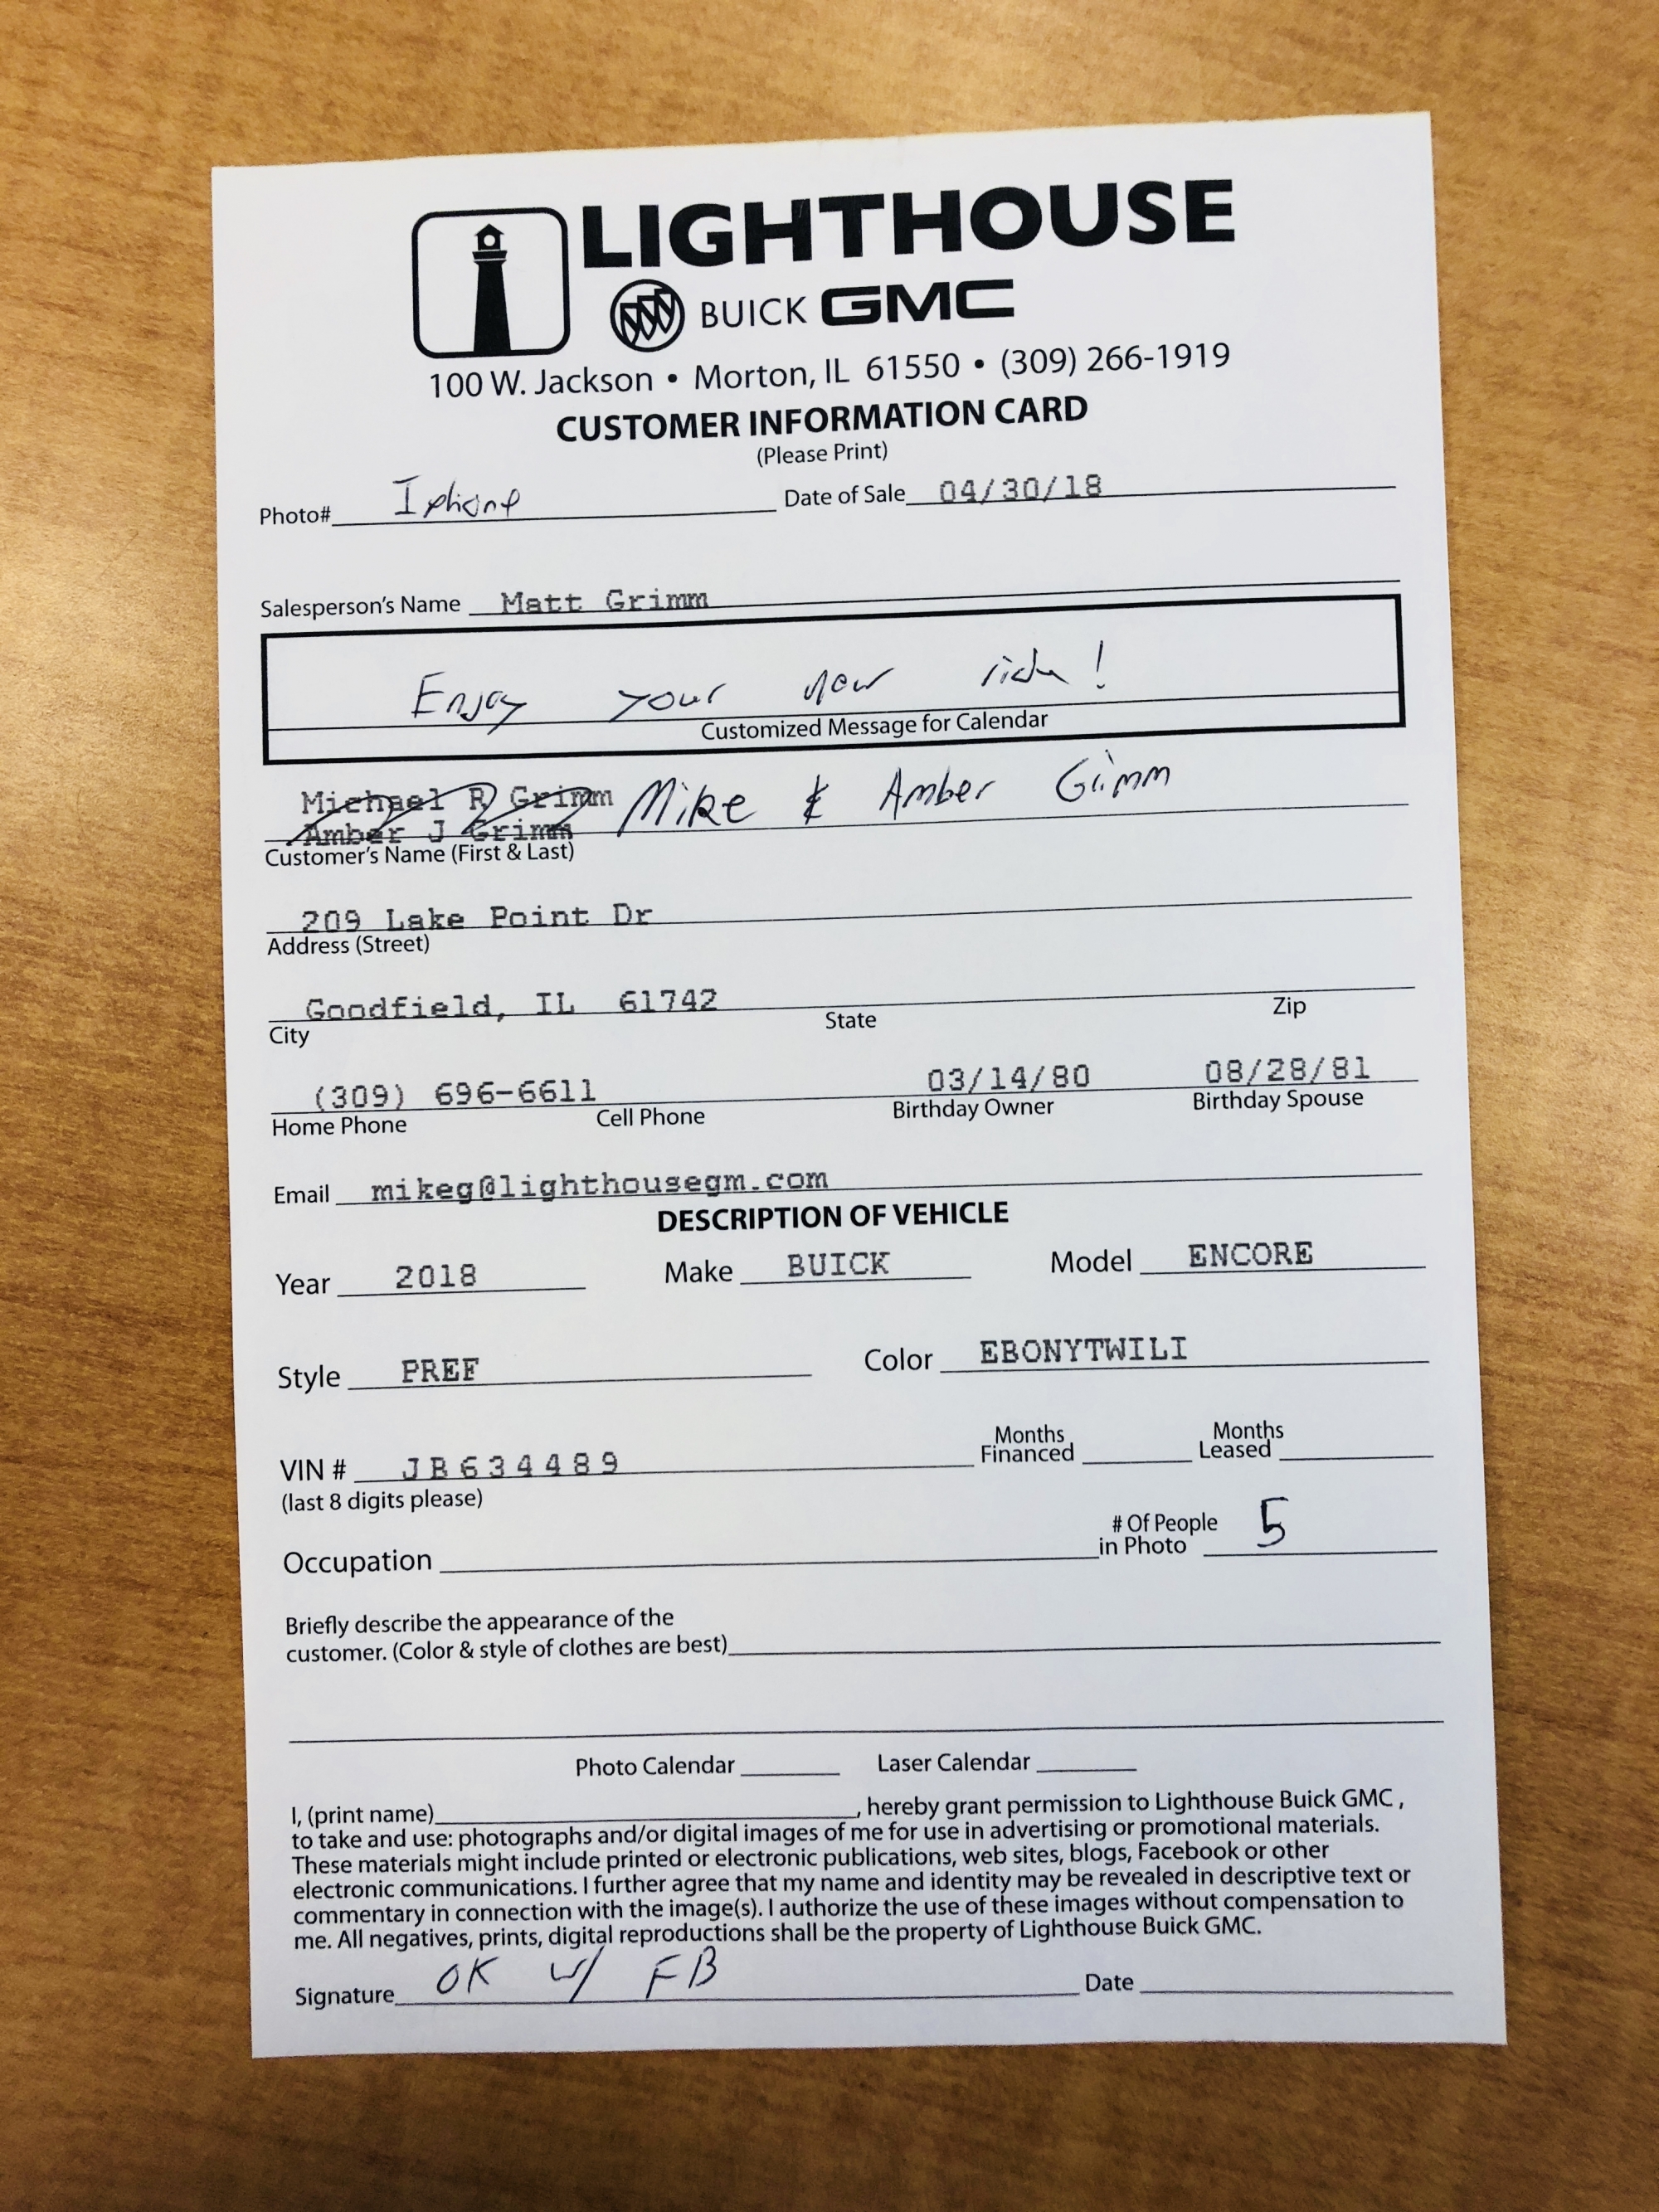 LIGHTHOUSE
BUICK GMC
100 W. Jackson • Morton, IL 61550 • (309) 266-1919
CUSTOMER INFORMATION CARD
(Please Print)
Photo# Iphone Date of Sale 04/30/18
Salesperson's Name Matt Grimm
Enjoy your new ride!
Customized Message for Calendar
Michael R Grimm Mike & Amber Grimm
Amber J Grimm
Customer's Name (First & Last)
209 Lake Point Dr
Address (Street)
Goodfield, IL 61742
City State Zip
(309) 696-6611 03/14/80 08/28/81
Home Phone Cell Phone Birthday Owner Birthday Spouse
Email mikeg@lighthousegm.com
DESCRIPTION OF VEHICLE
Year 2018 Make BUICK Model ENCORE
Style PREF Color EBONYTWILI
VIN # JB634489 Months Financed Months Leased
(last 8 digits please)
Occupation # Of People in Photo 5
Briefly describe the appearance of the
customer. (Color & style of clothes are best)
Photo Calendar Laser Calendar
I, (print name), hereby grant permission to Lighthouse Buick GMC ,
to take and use: photographs and/or digital images of me for use in advertising or promotional materials.
These materials might include printed or electronic publications, web sites, blogs, Facebook or other
electronic communications. I further agree that my name and identity may be revealed in descriptive text or
commentary in connection with the image(s). I authorize the use of these images without compensation to
me. All negatives, prints, digital reproductions shall be the property of Lighthouse Buick GMC.
Signature OK w/ FB Date